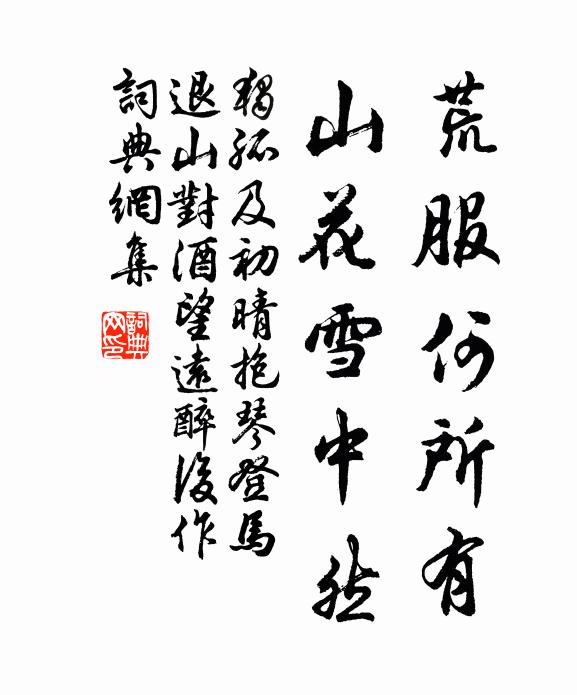 荒服何所有
山花雪中然
獨孤及初晴抱琴登馬
退山對酒望遠醉後作
詞典網集
詞典網印